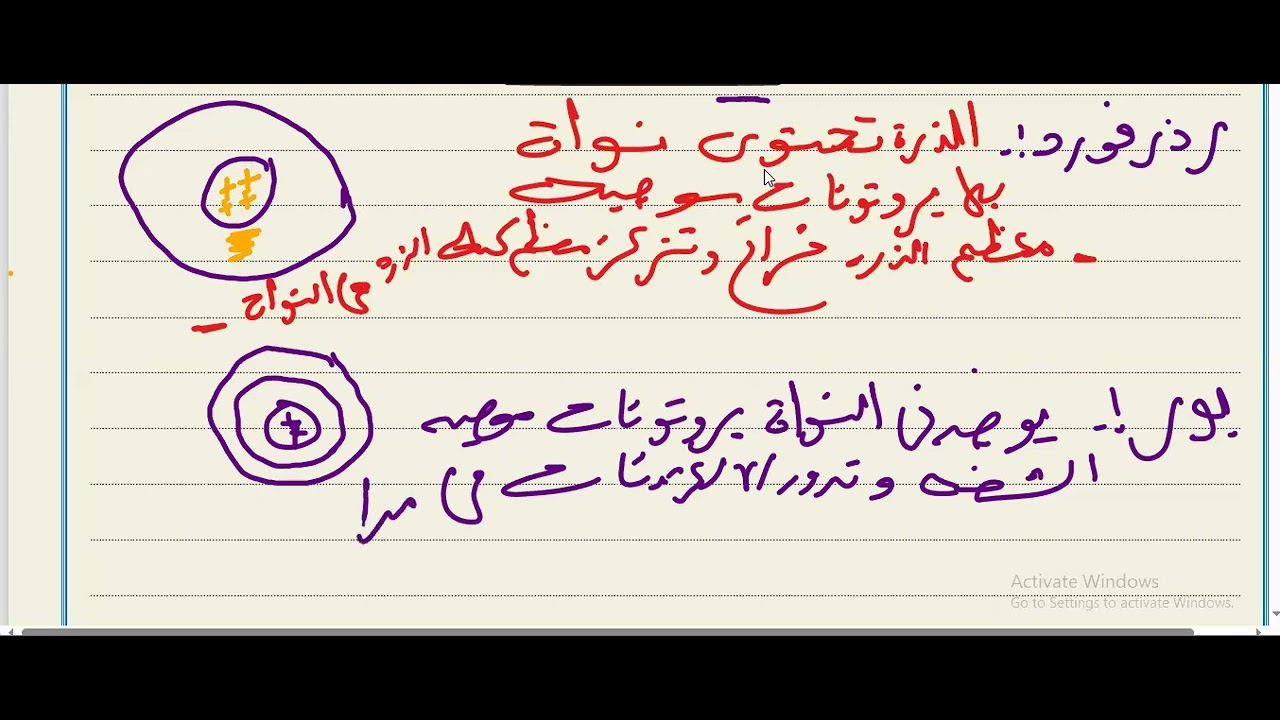 رذرفورد:- الذرة تحتوى نواة
بها بروتونات موجبة
- معظم الذرة فراغ وتتركز معظم كتلة الذرة
فى النواة -
بور:- يوجد فى النواة بروتونات موجبه
الشحنه وتدور الالكترونات فى مدا
Activate Windows
Go to Settings to activate Windows.